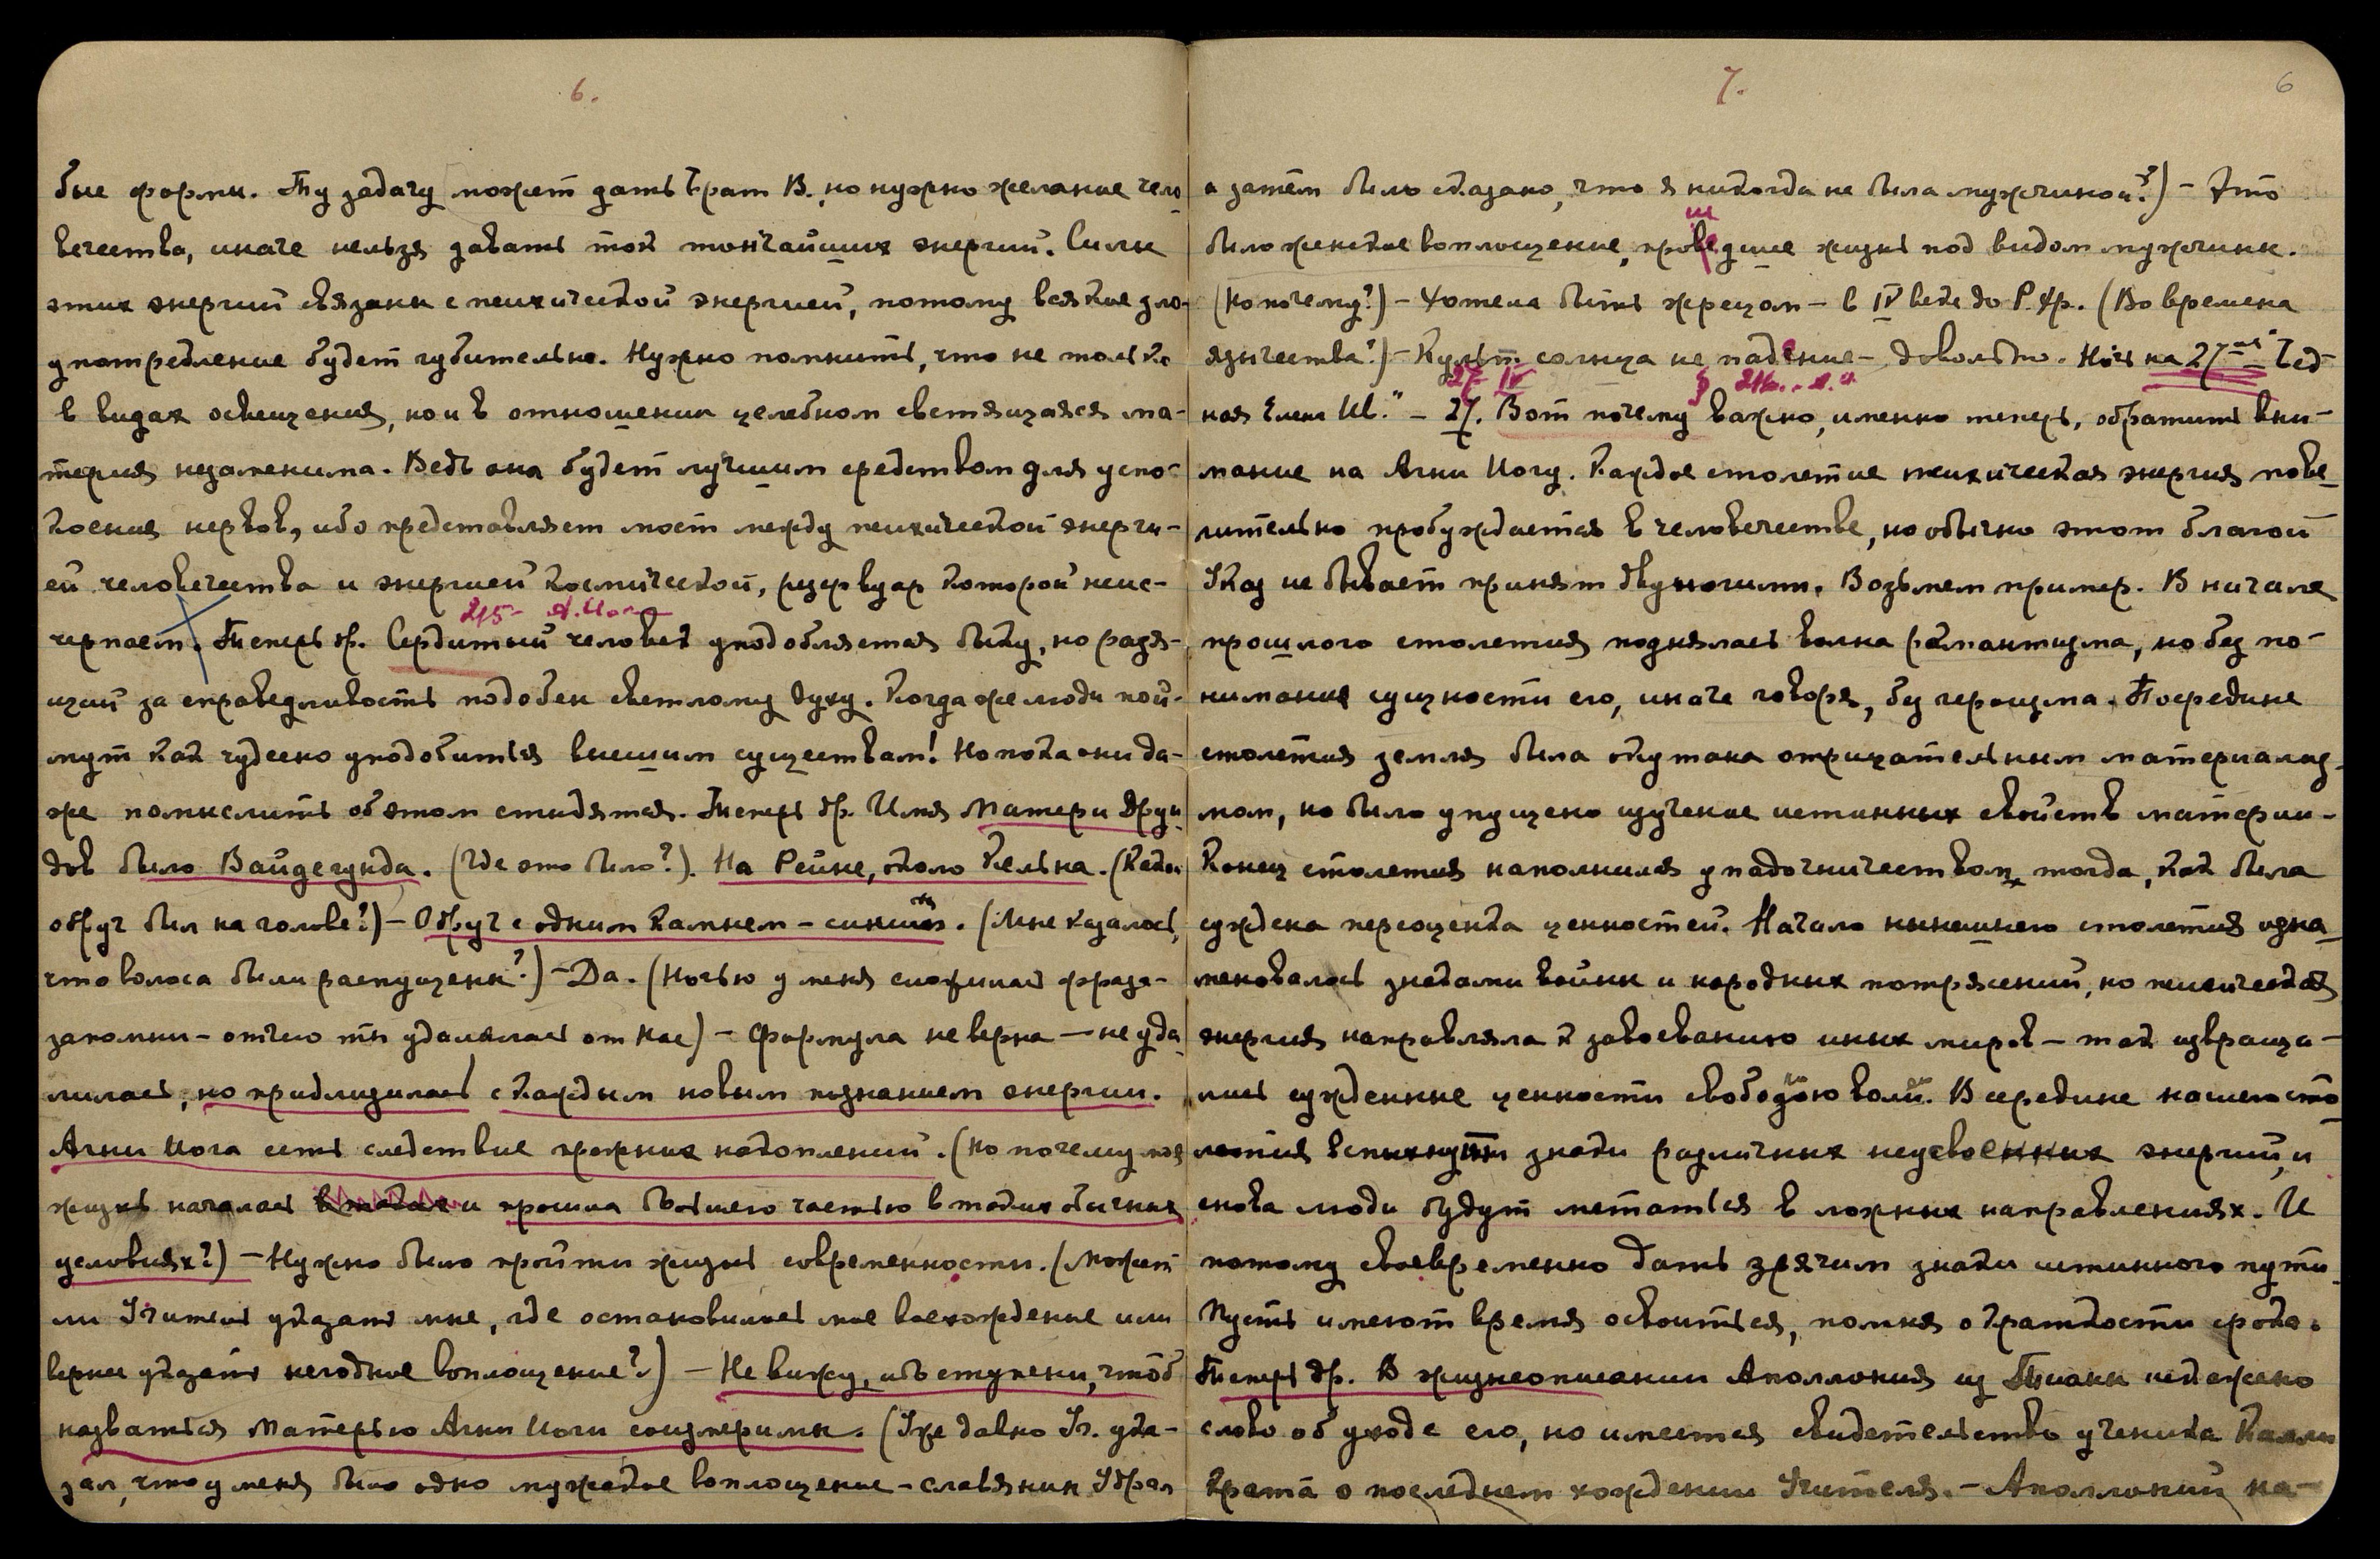 6.
бые формы. Ту задачу может дать Брат В., но нужно желание чело-
вечества, иначе нельзя давать ток тончайших энергий. Силы
этих энергий связаны с психической энергией, потому всякое зло-
употребление будет губительно. Нужно помнить, что не только
в видах освещения, но и в отношении целебном светящаяся ма-
терия незаменима. Ведь она будет лучшим средством для успо-
коения нервов, ибо представляет мост между психической энерги-
ей человечества и энергией космической, резервуар которой неис-
215 - А. Йога
черпаем. Теперь др. Сердитый человек уподобляется быку, но разя-
щий за справедливость подобен светлому духу. Когда же люди пой-
мут как чудесно уподобиться высшим существам! Но пока они да-
же помыслить об этом стыдятся. Теперь др. Имя Матери Друи-
дов было Вайдегунда. (Где это было?). На Рейне, около Кельна. (Какой
обруч был на голове?) - Обруч с одним камнем - синим. (Мне казалось,
что волоса были распущены?) - Да. (Ночью у меня сложилась фраза -
запомни - отчего ты удалялась от Нас) - Формула не верна - не уда-
лилась, но приблизилась с каждым новым познанием энергии.
Агни Йога есть следствие прежних накоплений. (Но почему моя
жизнь началась в таких и прошла большею частью в таких обычных
условиях?) - Нужно было пройти жизнь современности. (Может
ли Учитель указать мне, где остановилось мое восхождение или
вернее указать негодное воплощение?) - Не вижу, ибо ступени, чтоб
назваться Матерью Агни Йоги соизмеримы. (Уже давно Уч. ука-
зал, что у меня было одно мужское воплощение - славянин
7.
6
а затем было сказано, что я никогда не была мужчиной?) - Это
ш
было женское воплощение, проведшее жизнь под видом мужчины.
(Но почему?) - Хотела быть жрецом - в IV веке до Р. Хр. (Во времена
язычества?) - Культ солнца не падение - довольно. Ночь на 27-ое "Бед-
27- IV § 216. - А. Й.
ная Елен Ив." - 27. Вот почему важно, именно теперь, обратить вни-
мание на Агни Йогу. Каждое столетие психическая энергия пове-
лительно пробуждается в человечестве, но обычно этот благой
Указ не бывает принят двуногими. Возьмем пример. В начале
прошлого столетия поднялась волна романтизма, но без по-
нимания сущности его, иначе говоря, без героизма. Посредине
столетия земля была окутана отрицательным материализ-
мом, но было упущено изучение истинных свойств материи.
Конец столетия наполнился упадочничеством, тогда, как была
суждена переоценка ценностей. Начало нынешнего столетия озна-
меновалось знаками войны и народных потрясений, но психическая
энергия направляла к завоеванию иных миров - так извраща-
лись сужденные ценности свободою воли. В середине нашего сто-
летия вспыхнут знаки различных неусвоенных энергий, и
снова люди будут метаться в ложных направлениях. И
потому своевременно дать зрячим знаки истинного пути.
Пусть имеют время освоиться, помня о краткости срока.
Теперь др. В жизнеописании Аполлония из Тианы искажено
слово об уходе его, но имеется свидетельство ученика Калли-
крата о последнем хождении Учителя. - Аполлоний на-